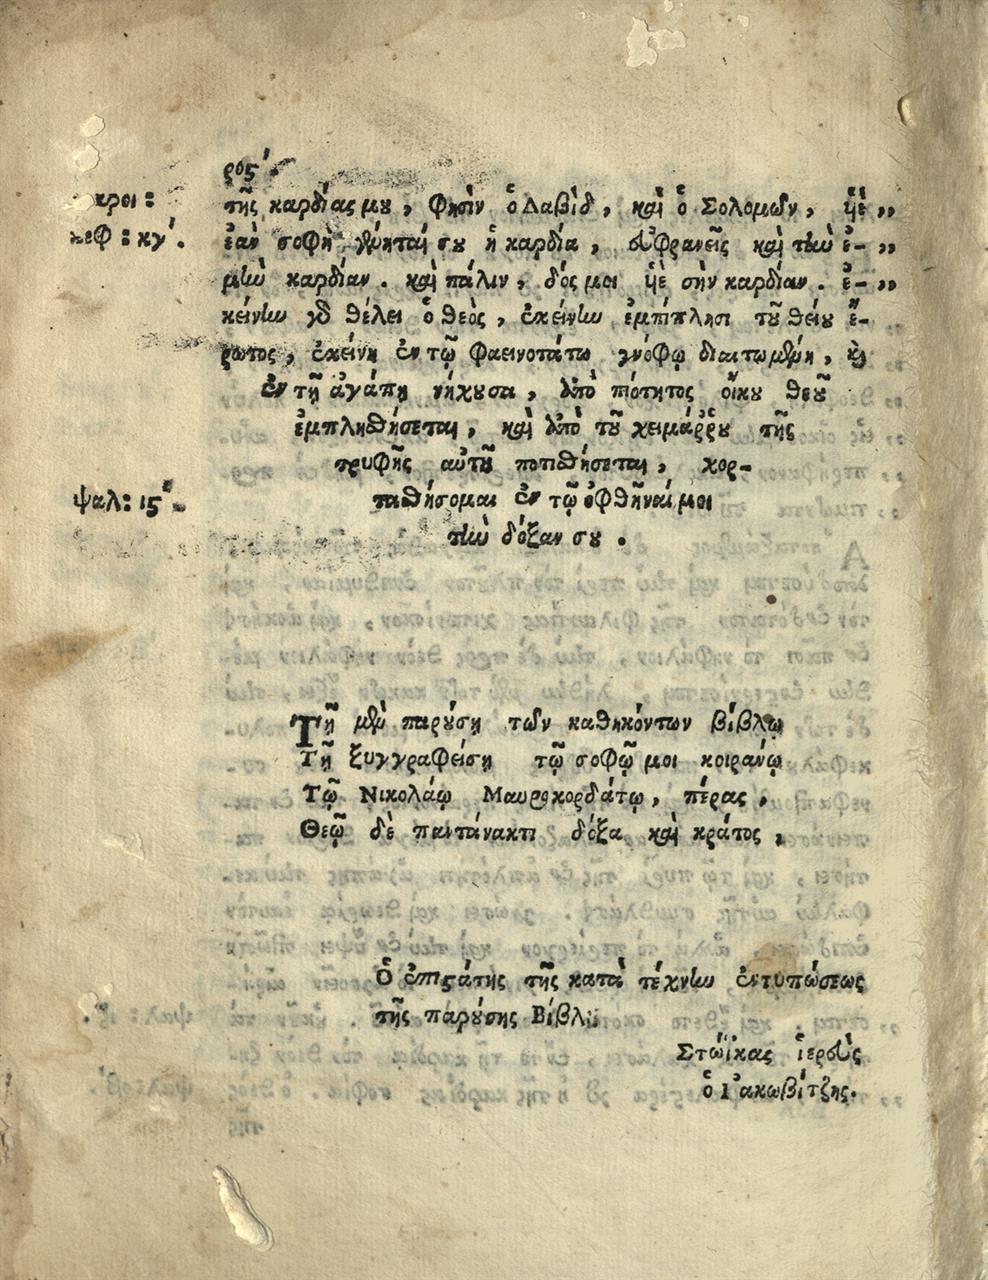 ρος´
της καρδίας μου, φησὶν ὁ Δαβὶδ, καὶ ὁ Σολομῶν, υἱὲ ,,
ἐὰν σοφὴ γένηταί σου ἡ καρδία, εὐφρανεῖς καὶ τὴν ἐ- ,,
κεφ: κγ´.
μὴν καρδίαν. καὶ πάλιν, δός μοι υἱὲ σὴν καρδίαν. ἐ- ,,
κείνην γὰρ θέλει ὁ θεὸς, ἐκείνην ἐμπίπλησι τοῦ θείου ἔ-
ρωτος, ἐκείνη ἐν τῷ φαεινοτάτῳ γνόφῳ διαιτωμένη, καὶ
ἐν τῇ ἀγάπῃ νήχουσα, ἀπὸ πιότητος οἴκου θεοῦ
ἐμπλησθήσεται, καὶ ἀπὸ τοῦ χειμάῤῥου τῆς
τρυφῆς αὐτοῦ ποτισθήσεται, χορ-
ψαλ: ις´.
τασθήσομαι ἐν τῷ ὀφθῆναί μοι
τὴν δόξαν σου.
Τῇ μὲν παρούσῃ τῶν καθηκόντων βίβλῳ
Τῇ ξυγγραφείσῃ τῷ σοφῷ μοι κοιράνῳ
Τῷ Νικολάῳ Μαυροκορδάτῳ, πέρας,
Θεῷ δὲ παντάνακτι δόξα καὶ κράτος,
Ὁ ἐπιστάτης τῆς κατὰ τέχνην ἐντυπώσεως
τῆς παρούσης Βίβλου
Στώϊκας ἱερεὺς
ὁ Ἰακωβίτζης.